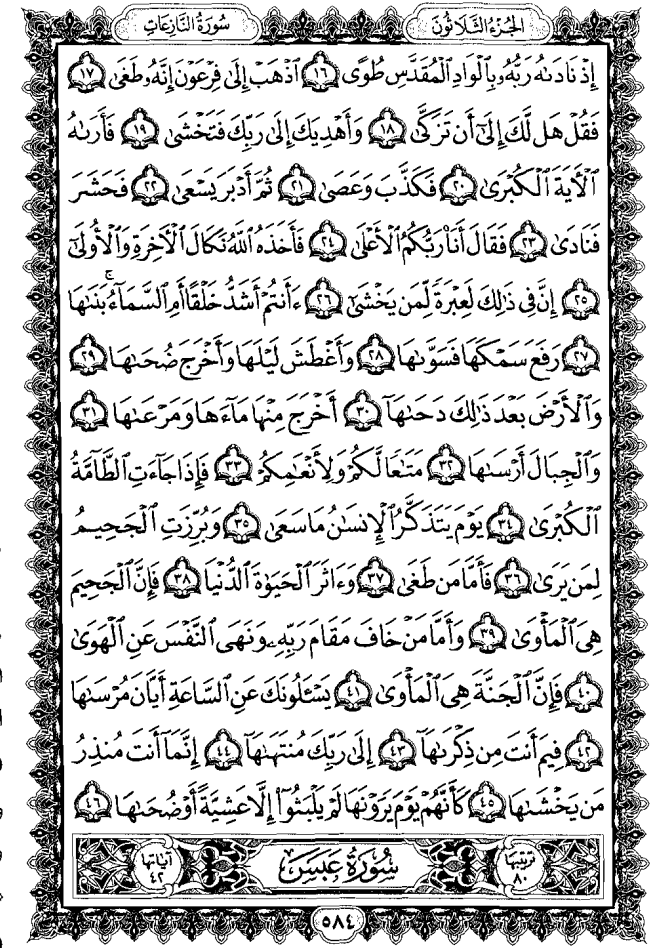 الجزء الثلاثون سورة النازعات
إِذْ نَادَىٰهُ رَبُّهُۥ بِٱلْوَادِ ٱلْمُقَدَّسِ طُوًى ١٦ ٱذْهَبْ إِلَىٰ فِرْعَوْنَ إِنَّهُۥ طَغَىٰ ١٧
فَقُلْ هَل لَّكَ إِلَىٰٓ أَن تَزَكَّىٰ ١٨ وَأَهْدِيَكَ إِلَىٰ رَبِّكَ فَتَخْشَىٰ ١٩ فَأَرَىٰهُ
ٱلْأٓيَةَ ٱلْكُبْرَىٰ ٢٠ فَكَذَّبَ وَعَصَىٰ ٢١ ثُمَّ أَدْبَرَ يَسْعَىٰ ٢٢ فَحَشَرَ
فَنَادَىٰ ٢٣ فَقَالَ أَنَا۠ رَبُّكُمُ ٱلْأَعْلَىٰ ٢٤ فَأَخَذَهُ ٱللَّهُ نَكَالَ ٱلْأٓخِرَةِ وَٱلْأُولَىٰٓ
٢٥ إِنَّ فِى ذَٰلِكَ لَعِبْرَةً لِّمَن يَخْشَىٰٓ ٢٦ ءَأَنتُمْ أَشَدُّ خَلْقًا أَمِ ٱلسَّمَآءُ ۚ بَنَىٰهَا
٢٧ رَفَعَ سَمْكَهَا فَسَوَّىٰهَا ٢٨ وَأَغْطَشَ لَيْلَهَا وَأَخْرَجَ ضُحَىٰهَا ٢٩
وَٱلْأَرْضَ بَعْدَ ذَٰلِكَ دَحَىٰهَآ ٣٠ أَخْرَجَ مِنْهَا مَآءَهَا وَمَرْعَىٰهَا ٣١
وَٱلْجِبَالَ أَرْسَىٰهَا ٣٢ مَتَٰعًا لَّكُمْ وَلِأَنْعَٰمِكُمْ ٣٣ فَإِذَا جَآءَتِ ٱلطَّآمَّةُ
ٱلْكُبْرَىٰ ٣٤ يَوْمَ يَتَذَكَّرُ ٱلْإِنسَٰنُ مَا سَعَىٰ ٣٥ وَبُرِّزَتِ ٱلْجَحِيمُ
لِمَن يَرَىٰ ٣٦ فَأَمَّا مَن طَغَىٰ ٣٧ وَءَاثَرَ ٱلْحَيَوٰةَ ٱلدُّنْيَا ٣٨ فَإِنَّ ٱلْجَحِيمَ
هِىَ ٱلْمَأْوَىٰ ٣٩ وَأَمَّا مَنْ خَافَ مَقَامَ رَبِّهِۦ وَنَهَى ٱلنَّفْسَ عَنِ ٱلْهَوَىٰ
٤٠ فَإِنَّ ٱلْجَنَّةَ هِىَ ٱلْمَأْوَىٰ ٤١ يَسْـَٔلُونَكَ عَنِ ٱلسَّاعَةِ أَيَّانَ مُرْسَىٰهَا
٤٢ فِيمَ أَنتَ مِن ذِكْرَىٰهَآ ٤٣ إِلَىٰ رَبِّكَ مُنتَهَىٰهَآ ٤٤ إِنَّمَآ أَنتَ مُنذِرُ
مَن يَخْشَىٰهَا ٤٥ كَأَنَّهُمْ يَوْمَ يَرَوْنَهَا لَمْ يَلْبَثُوٓا۟ إِلَّا عَشِيَّةً أَوْ ضُحَىٰهَا ٤٦
ترتيبها ٨٠ سُورَةُ عَبَسَ آياتها ٤٢
٥٨٤